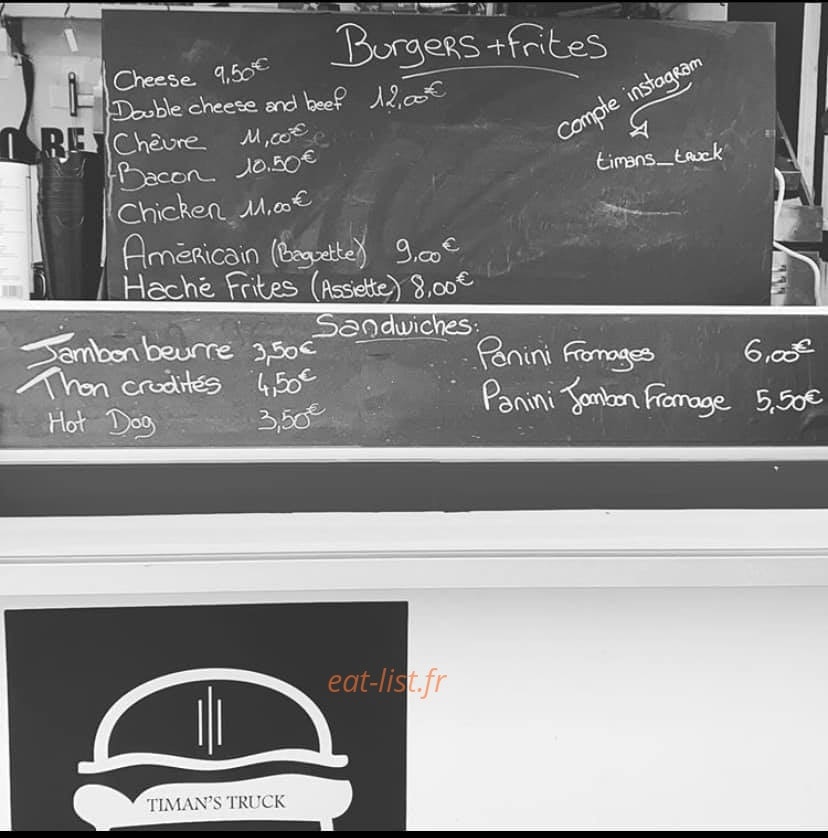 Burgers + Frites
Cheese 9,50€
Double cheese and beef 12,00€
Chèvre 11,00€
Bacon 10.50€
Chicken 11,00€
Américain (Baguette) 9,00€
Haché Frites (Assiette) 8,00€
compte instagram
timans_truck
Sandwiches:
Jambon beurre 3,50€
Thon crudités 4,50€
Hot Dog 3,50€
Panini Fromages 6,00€
Panini Jambon Fromage 5,50€
eat-list.fr
TIMAN'S TRUCK